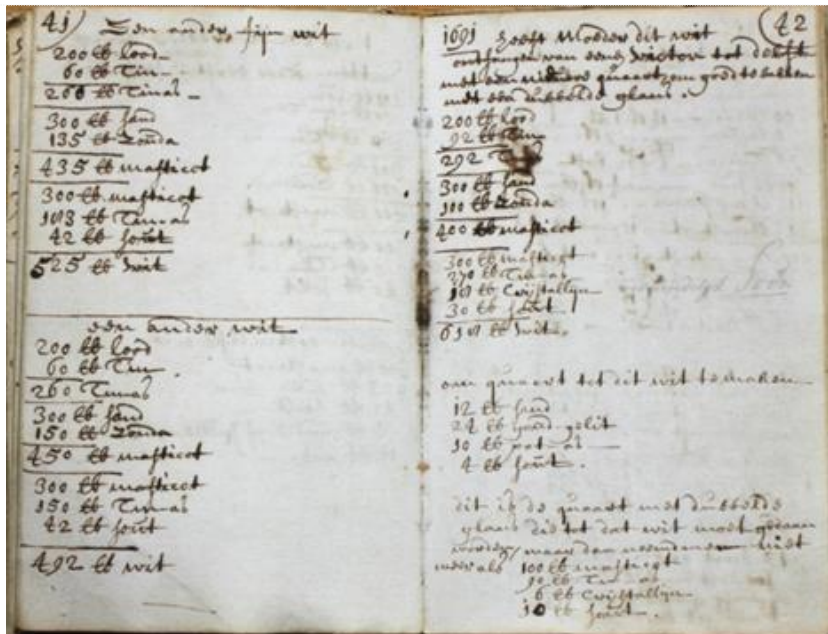 41
Een ander, fijn wit
200 lb lood
60 lb Tin
266 lb Tinas
300 lb sand
135 lb Zouda
435 lb masticot
300 lb masticot
183 lb Tinnas
42 lb sout
525 lb wit
een ander wit
200 lb lood
60 lb Tin
260 Tinnas
300 lb sand
150 lb Zouda
450 lb masticot
300 lb masticot
150 lb Tinnas
42 lb sout
492 lb wit
42
1691 heeft Moeder dit wit
ontfangen van eenen victor tot delft
met een quaart, om goed te
met een dubbelde glans.
200 lb lood
92 lb Tin
292
300 lb sand
100 lb Zouda
400 lb masticot
300 lb masticot
270 lb Tinnas
10 lb Cristallijn
30 lb sout
610 lb wit.
om quaert tot dit wit te maken
12 lb sand
24 lb goud gelit
10 lb pot as
4 lb sout.
dit is de quaart met dubbelde
glans die tot dat wit moet gedaan
worden, maar dan neemdmen niet
meer als 100 lb masticot
90 lb Tinnas
6 lb Cristallijn
10 lb sout.